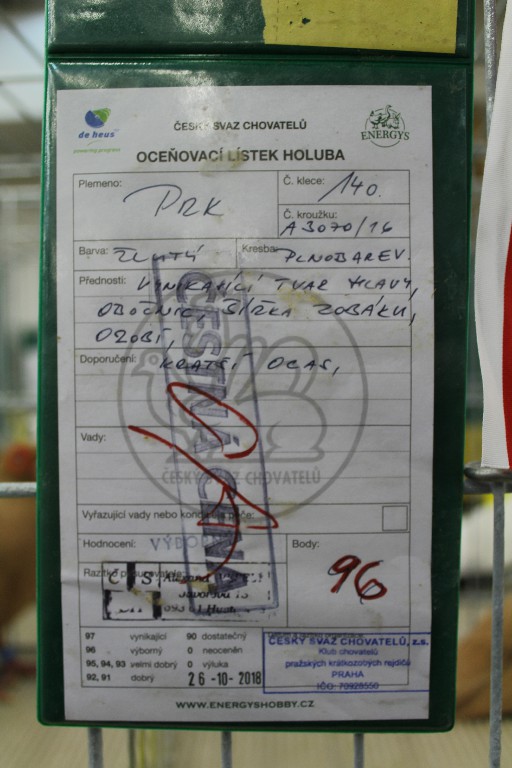 de heus
powering progress
ČESKÝ SVAZ CHOVATELŮ
ENERGYS
OCEŇOVACÍ LÍSTEK HOLUBA
Plemeno: PRK
Č. klece: 140.
Č. kroužku: A3070/16
Barva: ŽLUTÝ
Kresba: PLNOBAREV.
Přednosti: VYNIKAJÍCÍ TVAR HLAVY,
OBOČNICE, ŠÍŘKA ZOBÁKU,
OZOBÍ,
Doporučení: KRATŠÍ OCAS,
ČESTNÁ CENA
Vady:
ČESKÝ SVAZ CHOVATELŮ
Vyřazující vady nebo péče:
Hodnocení:
Body: 96
Razítko
97 vynikající 90 dostatečný
96 výborný 0 neoceněn
95, 94, 93 velmi dobrý 0 výluka
92, 91 dobrý 26 -10- 2018
ČESKÝ SVAZ CHOVATELŮ, z.s.
Klub chovatelů
pražských krátkozobých rejdičů
PRAHA
IČO: 70928550
WWW.ENERGYSHOBBY.CZ